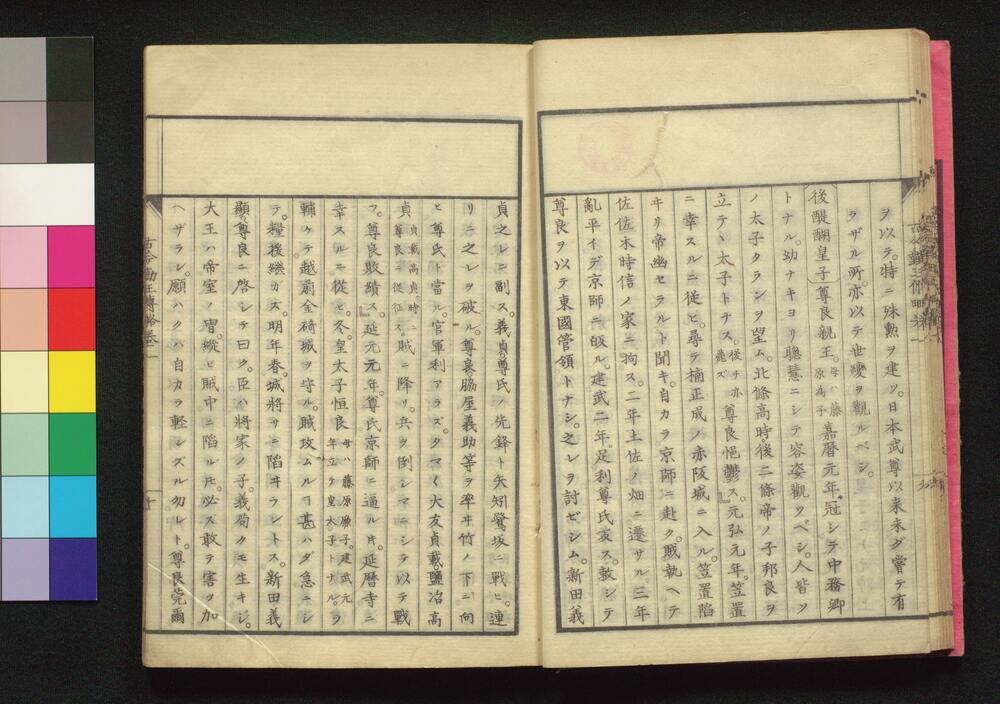 ヲ以テ。特ニ殊勲ヲ建ツ。日本武尊以来未ダ嘗テ有
ラザル所。亦以テ世變ヲ觀ルベシ。
後醍醐皇子尊良親王。母ハ藤原為子嘉暦元年。冠シテ中務卿
トナル。幼ナキヨリ聰慧ニシテ容姿觀ツベシ。人皆ツ
ノ太子タランヲ望ム。北條高時。後二條帝ノ子邦良ヲ
立テヽ太子トナス。後チ亦薨ズ尊良悒鬱ス。元弘元年。笠置
ニ幸スルニ從ヒ。尋テ楠正成ノ赤阪城ニ入ル。笠置陷
ヰリ帝幽セラルト聞キ。自カラ京師ニ赴ク。賊執ヘテ
佐佐木時信ノ家ニ拘ス。二年土佐ノ畑ニ遷サル。三年
亂平イデ京師ニ皈ル。建武二年。足利尊氏亥ス。敕シテ
尊良ヲ以テ東國管領トナシ。之レヲ討ゼシム。新田義
貞之レニ副ス。義貞尊氏ノ先鋒ト矢矧鷺坂ニ戰ヒ。連
リニ之レヲ破ル。尊良脇屋義助等ヲ率ヰ竹ノ下ニ向
ヒ尊氏ト當ル。官軍利アラズ。タマ〱大友貞載鹽冶高
貞貞載高貞時ニ尊良ニ從征ス。賊ニ降リ。兵ヲ倒シマニシラ以テ戰
フ。尊良敗績ス。延元元年。尊氏京師ニ逼ル片。延暦寺ニ
幸スルニ從ヒ。冬。皇太子恒良母ハ藤原廉子。建武元年立ケ皇太子トナル。ヲ
輔ケテ越前金碕城ヲ守ル。賊攻ムルヿ甚ハダ急ニシ
テ。糧後繼ガズ。明年春。城將サニ陷ヰラントス。新田義
顯。尊良ニ啓シテ曰ク。臣ハ將家ノ子。義苟クモ生キジ。
大王ハ帝室ノ冑縱ヒ賊中ニ陷ル𪜈。必ス敢テ害ヲ加。
ヘザラシ。願ハクハ自カラ輕シズル勿レト。尊良莞爾